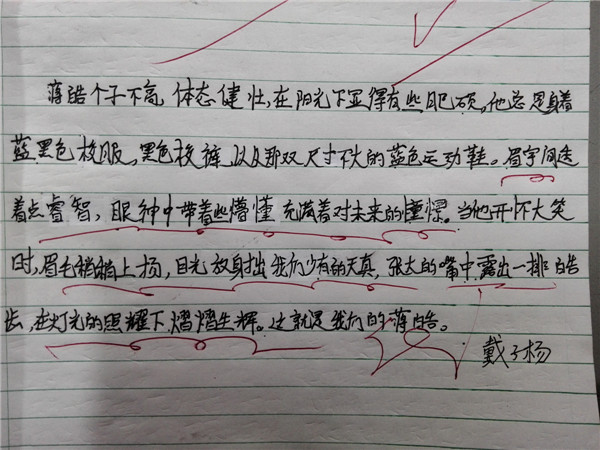 蒋皓个子不高,体态健壮,在阳光下显得有些肥硕。他总是身着
蓝黑色校服,黑色校裤,以及那双尺寸不大的蓝色运动鞋。眉宇间透
着点睿智,眼神中带着些懵懂充满着对未来的憧憬。当他开怀大笑
时,眉毛稍稍上扬,目光放射出我们少有的天真,张大的嘴中露出一排皓
齿,在灯光的照耀下熠熠生辉。这就是我们的蒋皓。
戴子杨